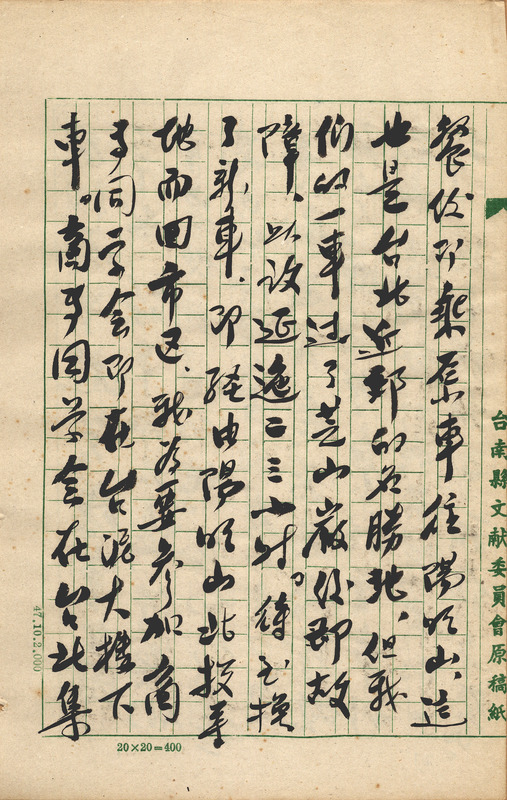 餐后即乘原車往陽明山、這
也是台北近郊的名勝地、但我
們的一車过了芝山巌後即故
障、以致延遲二三小时。待至換
了新車、即經由陽明山北投等
地而回市区、我为要參加商
专同学会即在台泥大樓下
車。商专同学会在台北集
台南縣文献委員會原稿紙
20×20=400
47.10.2,000